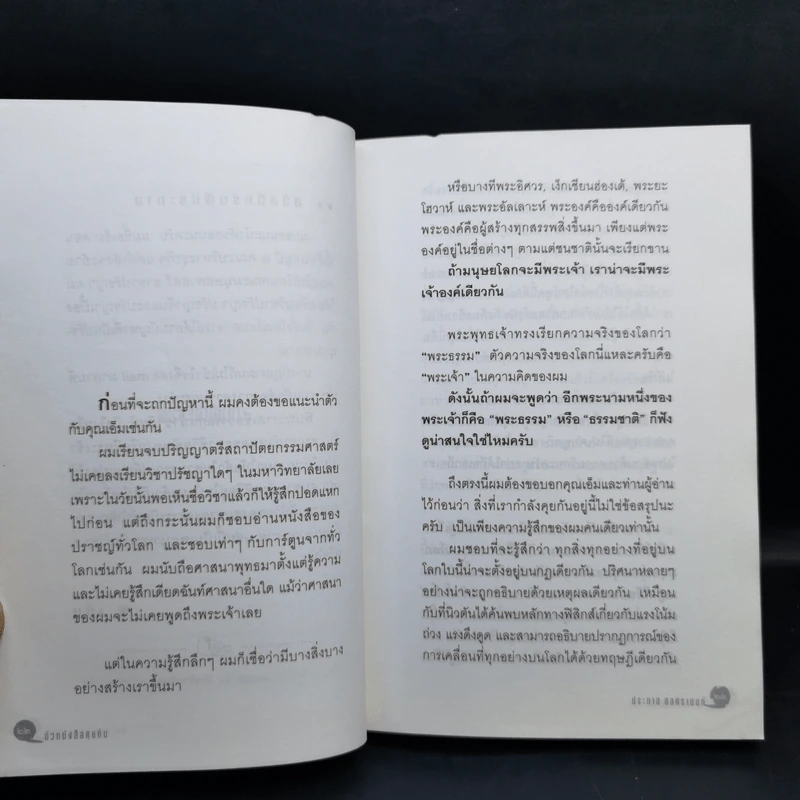 ก่อนที่จะถกปัญหานี้ ผมคงต้องขอแนะนำตัว
กับคุณเอ็มเช่นกัน
ผมเรียนจบปริญญาตรีสถาปัตยกรรมศาสตร์
ไม่เคยลงเรียนวิชาปรัชญาใดๆ ในมหาวิทยาลัยเลย
เพราะในวัยนั้นพอเห็นชื่อวิชาแล้วก็ให้รู้สึกปอดแหก
ไปก่อน แต่ถึงกระนั้นผมก็ชอบอ่านหนังสือของ
ปราชญ์ทั่วโลก และชอบเท่าๆ กับการ์ตูนจากทั่ว
โลกเช่นกัน ผมนับถือศาสนาพุทธมาตั้งแต่รู้ความ
และไม่เคยรู้สึกเดียดฉันท์ศาสนาอื่นใด แม้ว่าศาสนา
ของผมจะไม่เคยพูดถึงพระเจ้าเลย
แต่ในความรู้สึกลึกๆ ผมก็เชื่อว่ามีบางสิ่งบาง
อย่างสร้างเราขึ้นมา
๒๒ ตัวหนังสือคุยกัน
หรือบางทีพระอิศวร, เง็กเซียนฮ่องเต้, พระยะ
โฮวาห์ และพระอัลเลาะห์ พระองค์คือองค์เดียวกัน
พระองค์คือผู้สร้างทุกสรรพสิ่งขึ้นมา เพียงแต่พระ
องค์อยู่ในชื่อต่างๆ ตามแต่ชนชาตินั้นจะเรียกขาน
ถ้ามนุษยโลกจะมีพระเจ้า เราน่าจะมีพระ
เจ้าองค์เดียวกัน
พระพุทธเจ้าทรงเรียกความจริงของโลกว่า
“พระธรรม” ตัวความจริงของโลกนี่แหละครับคือ
“พระเจ้า” ในความคิดของผม
ดังนั้นถ้าผมจะพูดว่า อีกพระนามหนึ่งของ
พระเจ้าก็คือ “พระธรรม” หรือ “ธรรมชาติ” ก็ฟัง
ดูน่าสนใจใช่ไหมครับ
ถึงตรงนี้ผมต้องขอบอกคุณเอ็มและท่านผู้อ่าน
ไว้ก่อนว่า สิ่งที่เรากำลังคุยกันอยู่นี้ไม่ใช่ข้อสรุปนะ
ครับ เป็นเพียงความรู้สึกของผมคนเดียวเท่านั้น
ผมชอบที่จะรู้สึกว่า ทุกสิ่งทุกอย่างที่อยู่บน
โลกใบนี้น่าจะตั้งอยู่บนกฎเดียวกัน ปริศนาหลายๆ
อย่างน่าจะถูกอธิบายด้วยเหตุผลเดียวกัน เหมือน
กับที่นิวตันได้ค้นพบหลักทางฟิสิกส์เกี่ยวกับแรงโน้ม
ถ่วง แรงดึงดูด และสามารถอธิบายปรากฏการณ์ของ
การเคลื่อนที่ทุกอย่างบนโลกได้ด้วยทฤษฎีเดียวกัน
ประภาส ชลศรานนท์